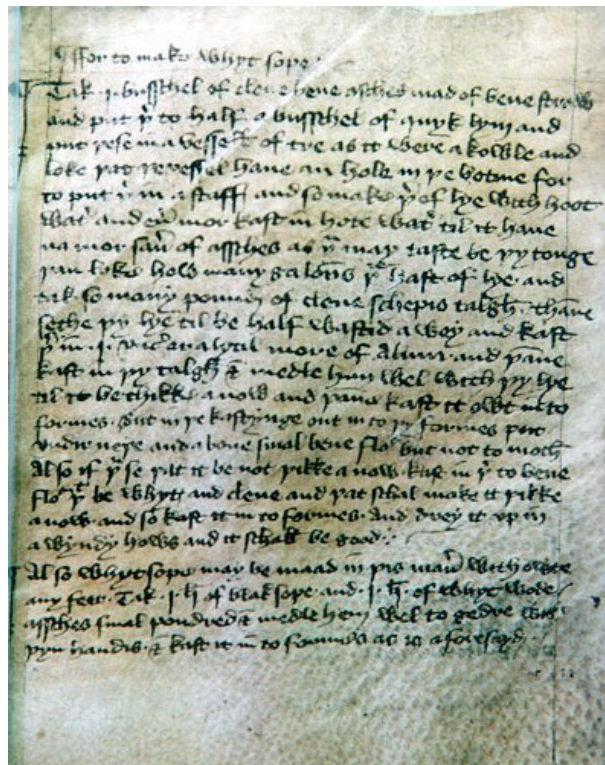 ffor to make whyt sope .
Tak .j. busschel of clene bene asches mad of bene straw
and put þ to half a busschel of quyk lym and
put þese in a vessel of tre as it were a kowle and
loke þat þe vessel haue an hole in þe botme for
to put þ in a staff and so make þ of lye with hoot
wat and mor kast in hote wat til it haue
na mor sau of assches as þ may taste be þy tonge
þan loke how many galons þ hast of lye . and
tak so many pound of clene schepis talgh . thane
sethe þy lye til þe half wastid a wey and kast
þ in .j. or a lytil more of Alum . and þane
kast in þy talgh & medle hem wel with þy lye
til it be thikke a now and þane kast it owt in to
formes . But in þe kastynge out in to þy formes put
vndir neþe and aboue smal bene flo but not to moch
Also if þ se þat it be not þikke a now . kast in þ to bene
flo þ be whytt and clene and þat schal make it þikke
a now . and so kast it in to formes . And drey it vp in
a wyndy hows and it schall be good .
Also whyt sope may be maad in þis man with owte
any feer . Tak .j. li of blak sope and .j. li . of whyt wode
assches smal poudred & medle hem wel to gedre
þyn handis . & kast it in to formes as is aforeseyd .